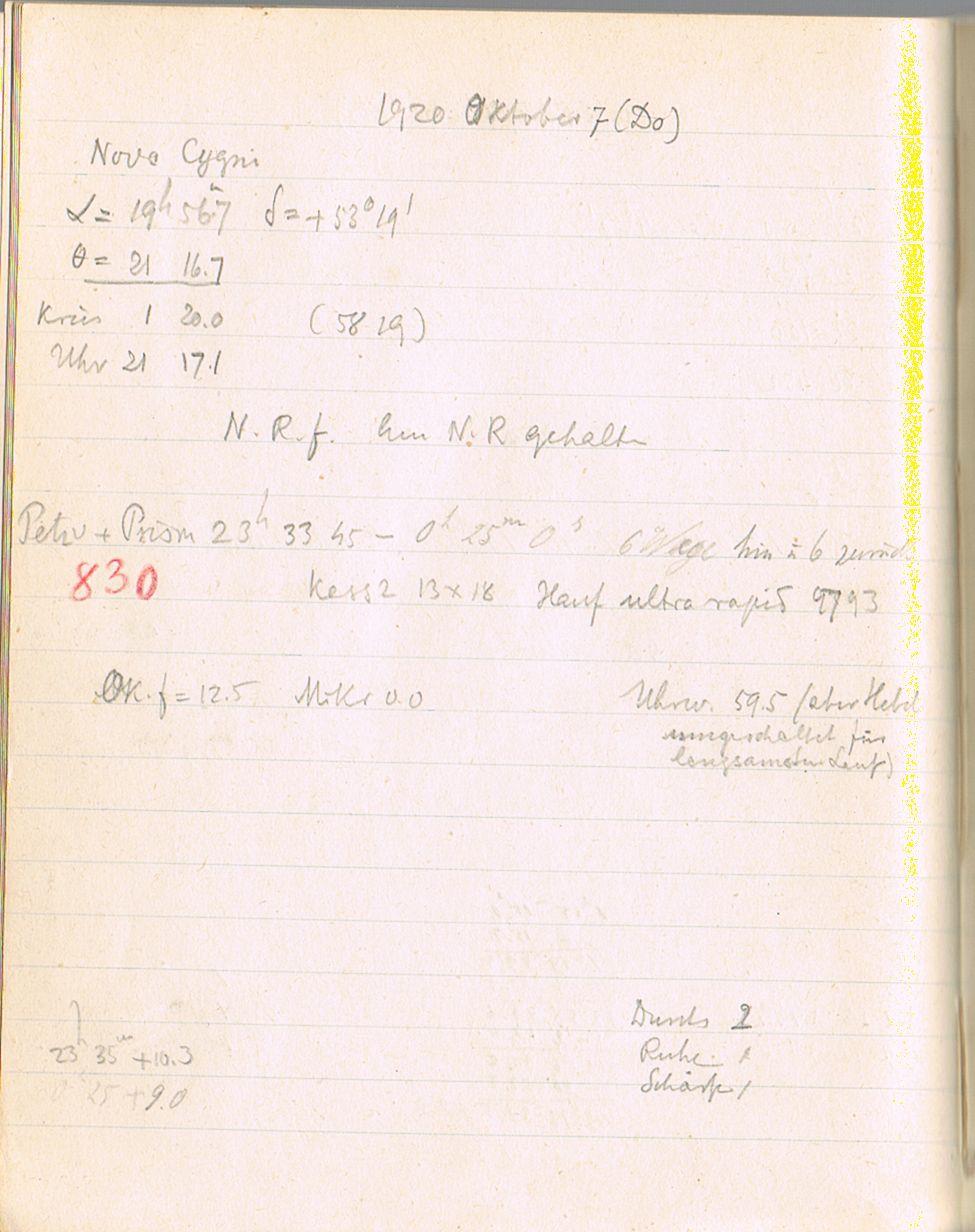 1920 Oktober 7 (Do)
Nova Cygni
α = 19h 56.7m δ = +53° 19'
θ = 21 16.7
Kreis 1 20.0 (58 19)
Uhr 21 17.1
N. R. f. N. R gehalten
Petz + Prism 23h 33 45 – 0h 25m 0s 6 Wege hin u 6 zurück
830 Kass2 13×18 Hauf ultra rapid 9793
OK. f = 12.5 Mikr 0.0 Uhrw. 59.5 (aber Hebel
umgeschaltet für
langsamsten Lauf)
Durchs 2
23h 35m +10.3 Ruhe 1
0 25 +9.0 Schärfe 1